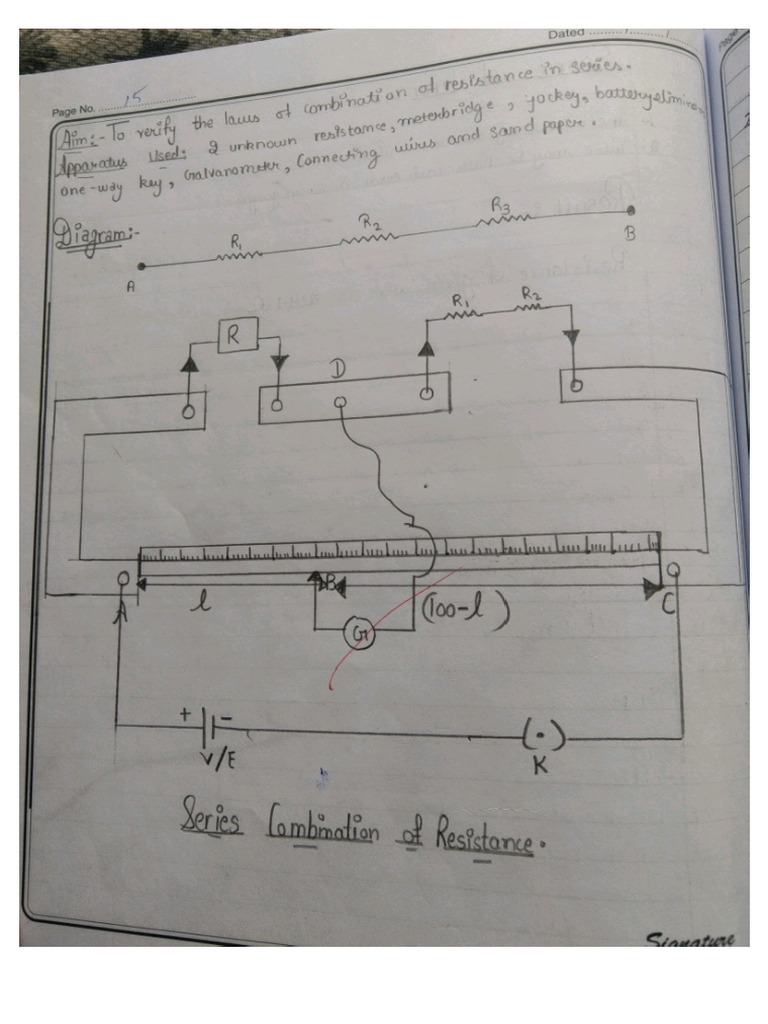 Dated ......../......../........
Page No. 15
Aim:- To verify the laws of combination of resistance in series.
Apparatus Used: 2 unknown resistance, meterbridge, jockey, battery
one-way key, Galvanometer, Connecting wires and sand paper.
Diagram:-
R1 R2 R3
A B
R R1 R2
D
A l B (100-l) C
G
+ -
V/E K
Series Combination of Resistance.
Signature